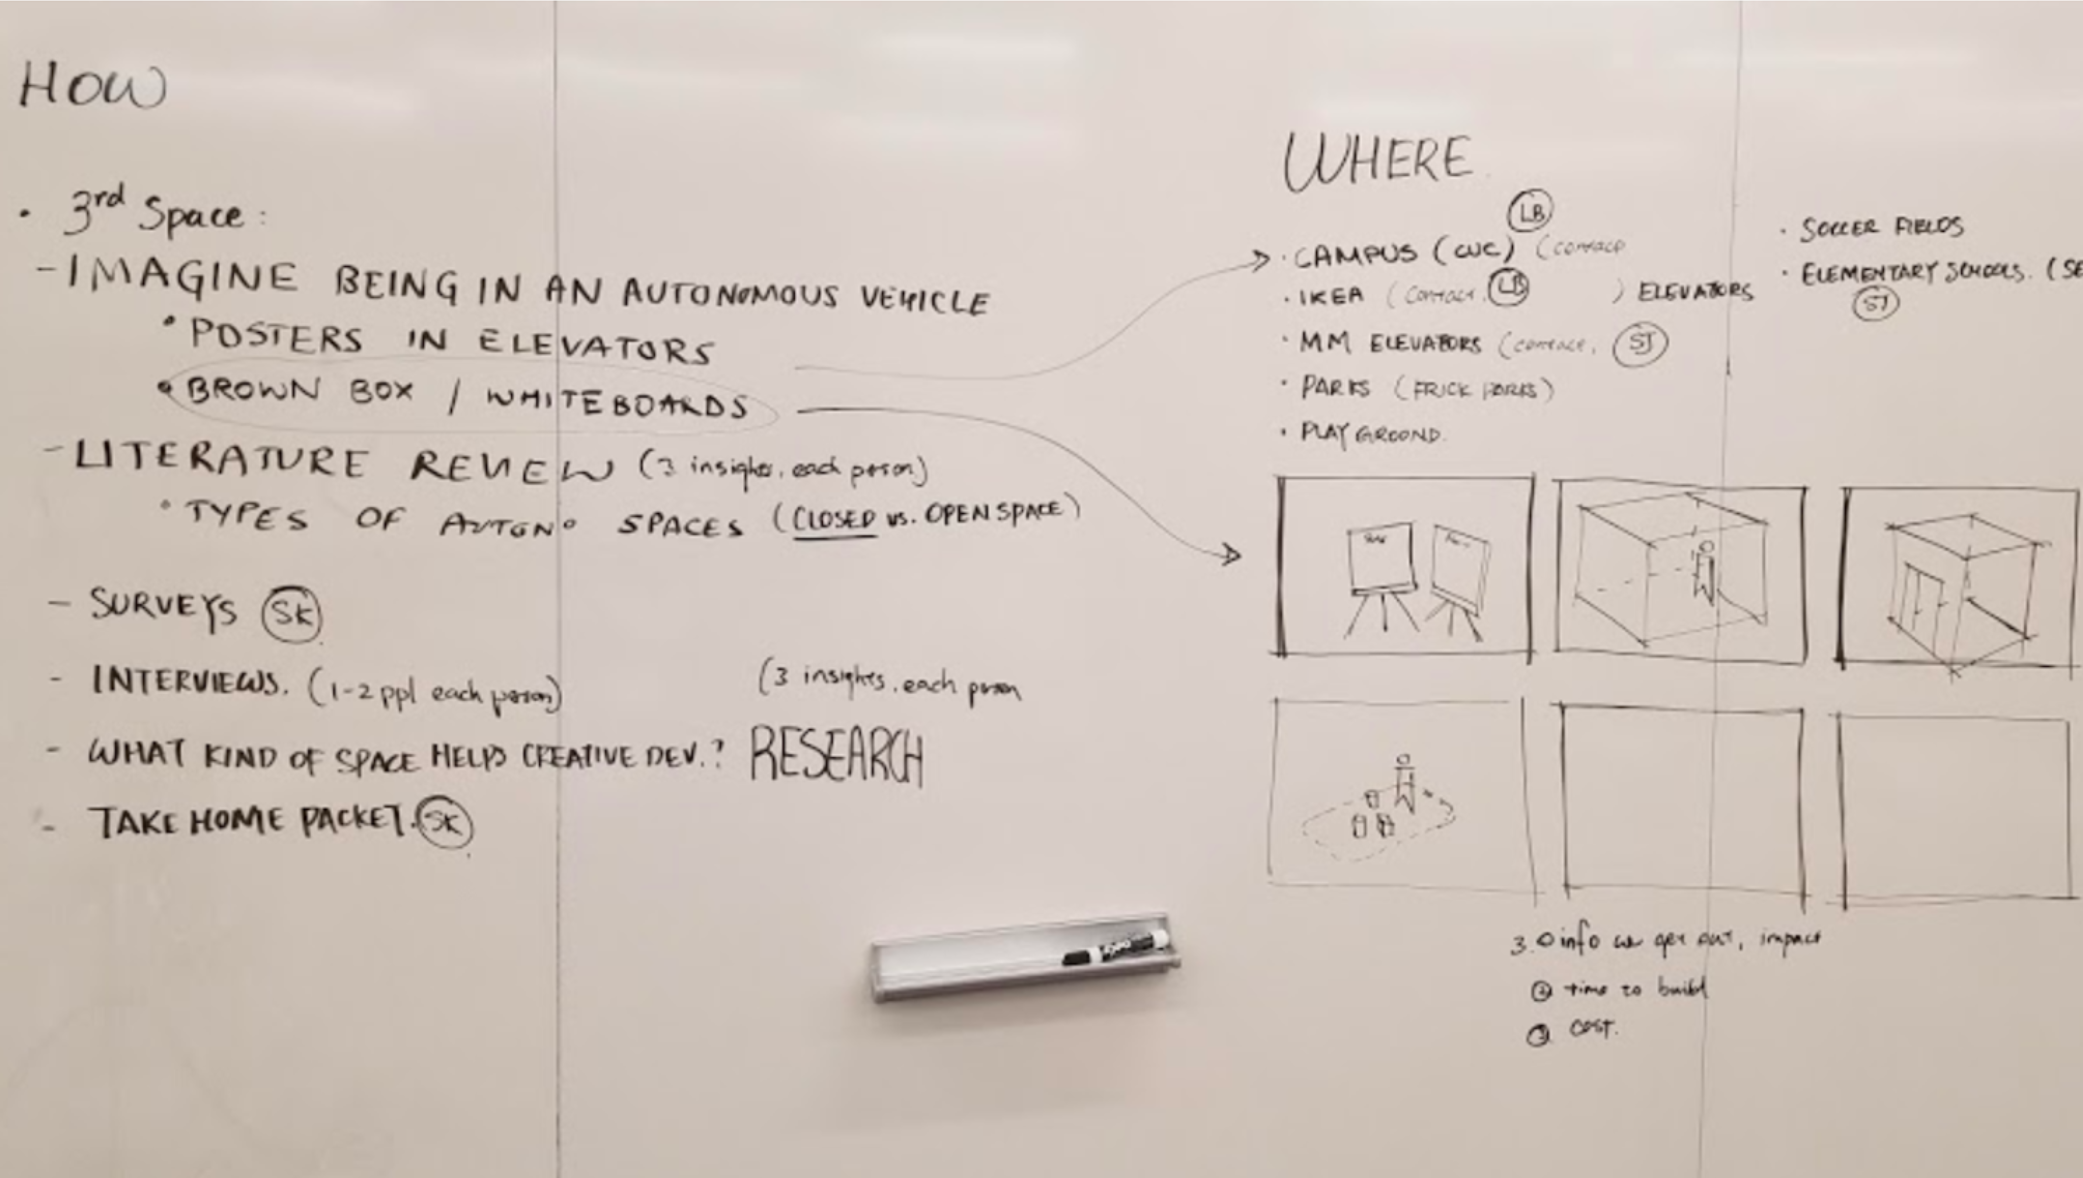 HOW
• 3rd Space:
- IMAGINE BEING IN AN AUTONOMOUS VEHICLE
• POSTERS IN ELEVATORS
• BROWN BOX / WHITEBOARDS
- LITERATURE REVIEW (3 insights, each person)
• TYPES OF AUTONO SPACES (CLOSED vs. OPEN SPACE)
- SURVEYS SK
- INTERVIEWS. (1-2 ppl each person)
(3 insights, each person
- WHAT KIND OF SPACE HELPS CREATIVE DEV.? RESEARCH
- TAKE HOME PACKET. SK
WHERE
LB
• CAMPUS (CUC) (contact
• IKEA (contact. LB ) ELEVATORS
• MM ELEVATORS (contact. SJ
• PARKS (FRICK PARKS)
• PLAYGROUND.
• SOCCER FIELDS
• ELEMENTARY SCHOOLS. (SE
SJ
3. info we get out, impact
② time to build
COST.